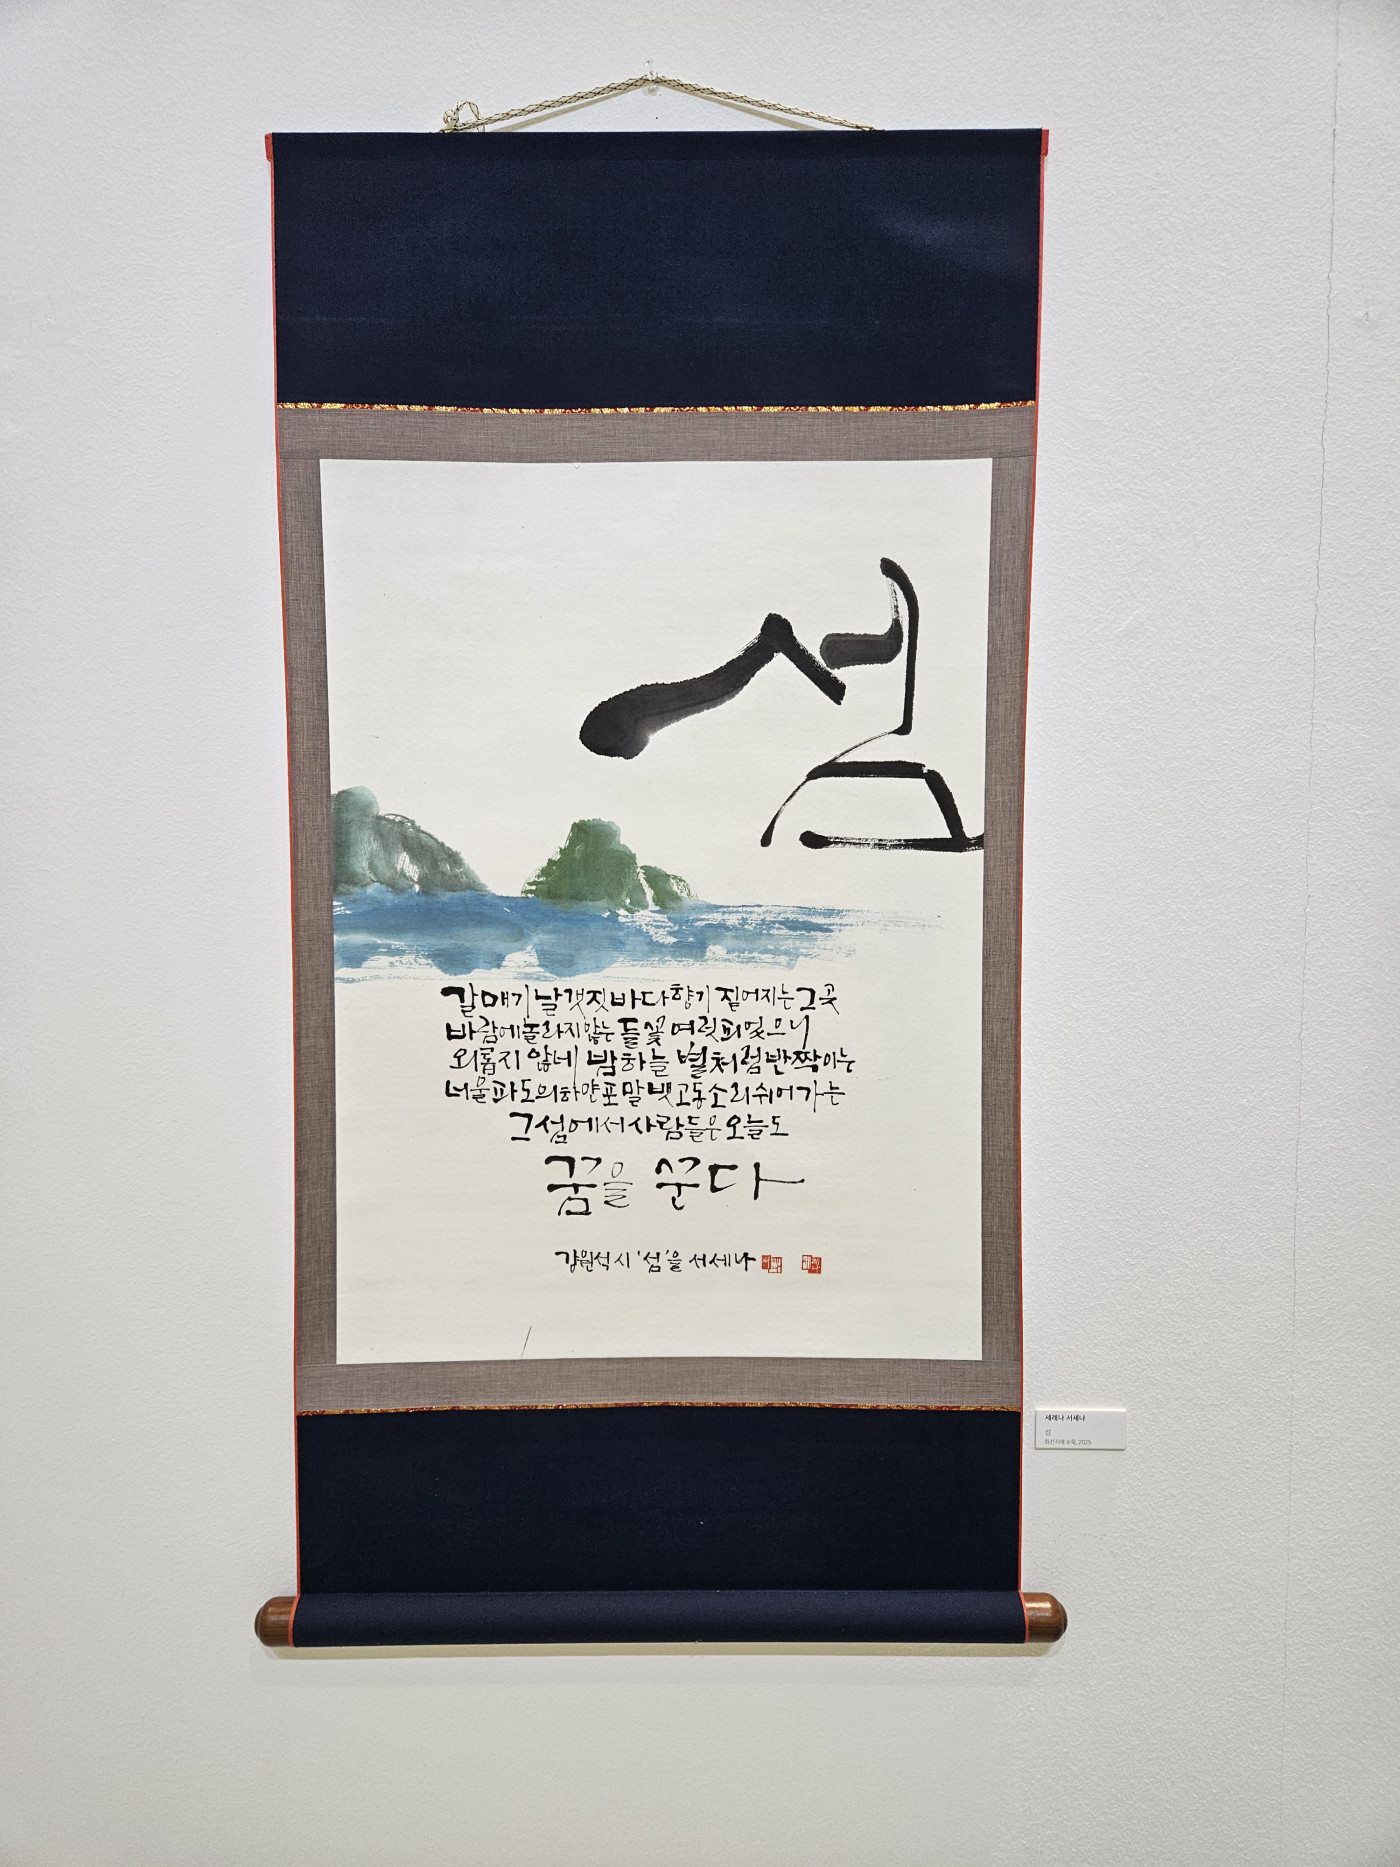 섬
갈매기 날갯짓 바다향기 짙어지는 그 곳
바람에 놀라지 않는 들꽃 여럿 피었으니
외롭지 않네 밤하늘 별처럼 반짝이는
너울 파도의 하얀 포말 뱃고동소리 쉬어가는
그 섬에서 사람들은 오늘도
꿈을 꾼다
강원석 시 '섬'을 서세나
세레나 서세나
섬
화선지에 수묵, 2025